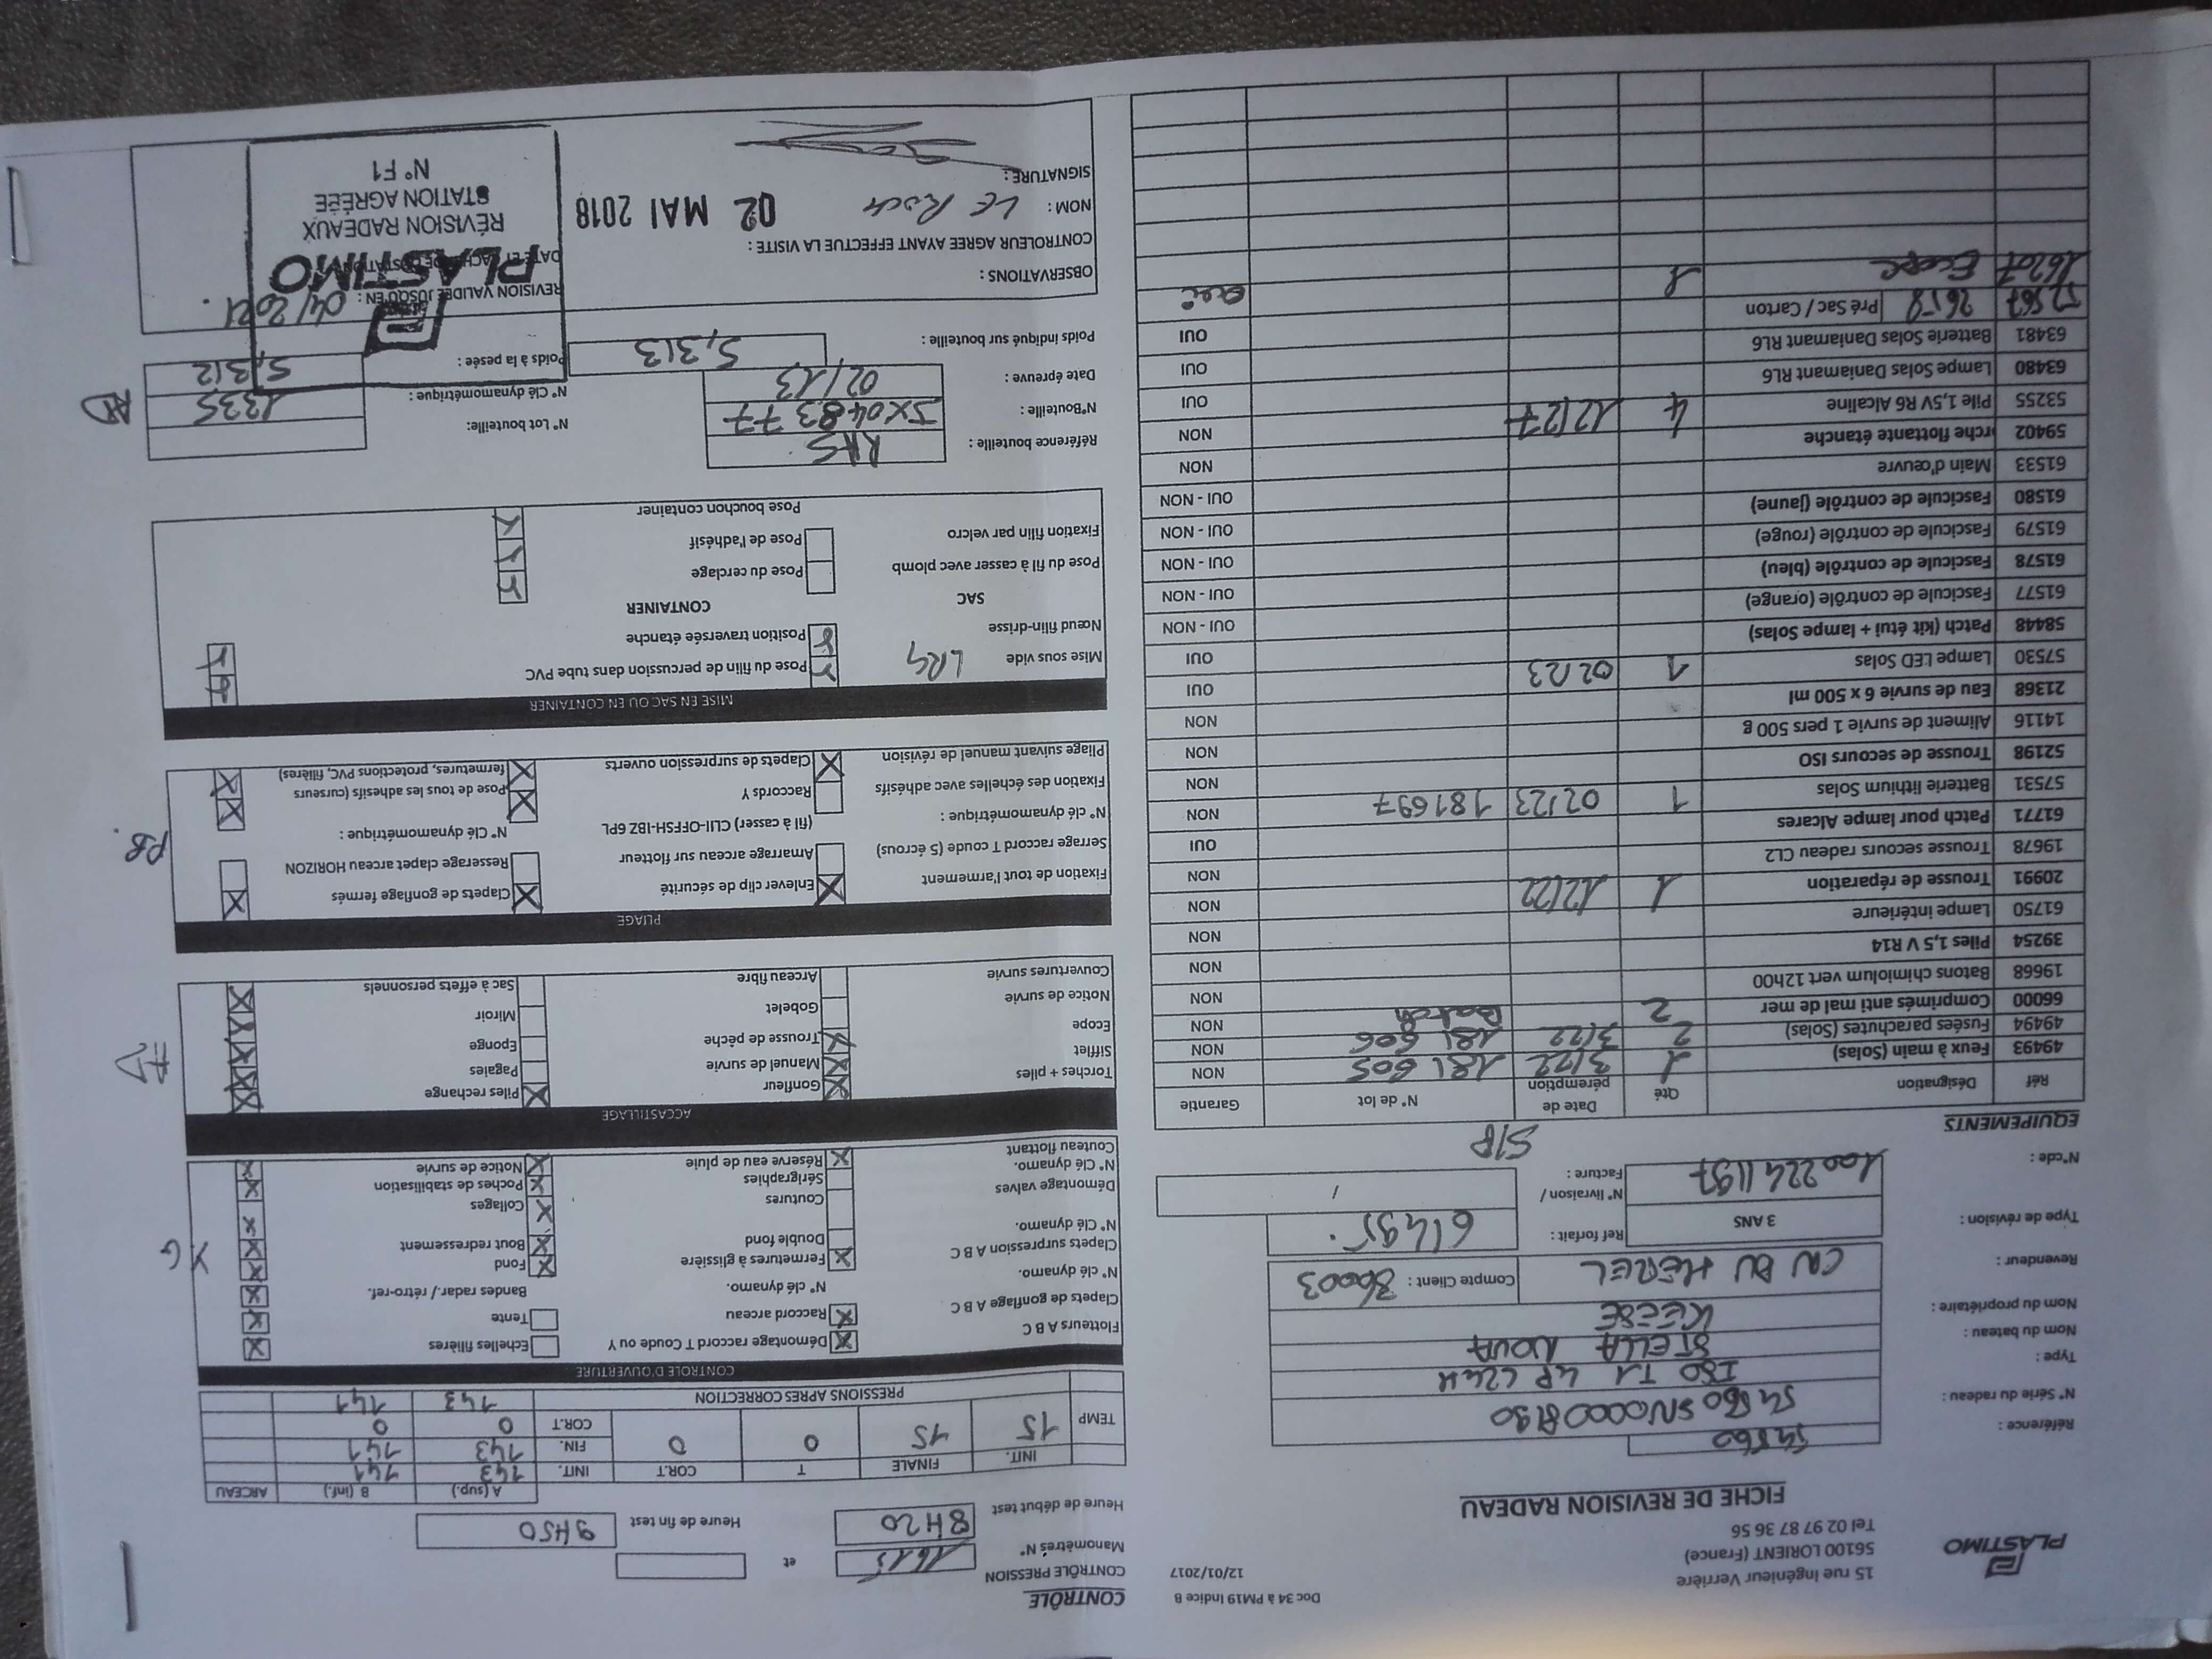 PLASTIMO
15 rue Ingénieur Verrière
56100 LORIENT (France)
Tel 02 97 87 36 56
Doc 34 à PM19 Indice B
12/01/2017
FICHE DE REVISION RADEAU
Référence : 54560
N° Série du radeau : 54560 SN00008130
Type : ISO T1 4P C24H
Nom du bateau : STELLA NOVA
Nom du propriétaire : KEESE
Revendeur : CN DU HEREL Compte Client : 36003
Type de révision : 3 ANS Ref forfait : 61495
N°cde : 1002241197 N° livraison / Facture : /
S/P
EQUIPEMENTS
Réf Désignation Qté Date de péremption N° de lot Garantie
49493 Feux à main (Solas) 3/22 181605 NON
49494 Fusées parachutes (Solas) 2 3/22 181606 NON
66000 Comprimés anti mal de mer 2 NON
19668 Batons chimiolum vert 12h00 NON
39254 Piles 1,5 V R14 NON
61750 Lampe intérieure NON
20991 Trousse de réparation 1 12/22 NON
19678 Trousse secours radeau CL2 OUI
61771 Patch pour lampe Alcares NON
57531 Batterie lithium Solas 1 02/23 181697 NON
52198 Trousse de secours ISO NON
14116 Aliment de survie 1 pers 500 g NON
21368 Eau de survie 6 x 500 ml OUI
57530 Lampe LED Solas 1 02/23 OUI
58448 Patch (kit étui + lampe Solas) OUI - NON
61577 Fascicule de contrôle (orange) OUI - NON
61578 Fascicule de contrôle (bleu) OUI - NON
61579 Fascicule de contrôle (rouge) OUI - NON
61580 Fascicule de contrôle (jaune) OUI - NON
61533 Main d'œuvre NON
59402 rche flottante étanche NON
53255 Pile 1,5V R6 Alcaline 4 12/27 OUI
63480 Lampe Solas Daniamant RL6 OUI
63481 Batterie Solas Daniamant RL6 OUI
Pré Sac / Carton
16207 Ecope 1
CONTRÔLE
CONTRÔLE PRESSION
Manomètres N° 1615 et
Heure de début test 8H20 Heure de fin test 9H50
A (sup.) B (inf.) ARCEAU
INIT. FINALE T COR.T INIT. 143 141
TEMP 15 15 0 0 FIN. 143 141
COR.T 0 0
PRESSIONS APRES CORRECTION 143 141
CONTROLE D'OUVERTURE
Flotteurs A B C Démontage raccord T Coude ou Y Echelles filières
Clapets de gonflage A B C Raccord arceau Tente
N° clé dynamo. N° clé dynamo. Bandes radar./ rétro-ref.
Clapets surpression A B C Fermetures à glissière Fond
N° Clé dynamo. Double fond Bout redressement
Démontage valves Coutures Collages
N° Clé dynamo. Sérigraphies Poches de stabilisation
Couteau flottant Réserve eau de pluie Notice de survie
ACCASTILLAGE
Torches + piles Gonfleur Piles rechange
Sifflet Manuel de survie Pagaies
Ecope Trousse de pêche Eponge
Notice de survie Gobelet Miroir
Couvertures survie Arceau fibre Sac à effets personnels
PLIAGE
Fixation de tout l'armement Enlever clip de sécurité Clapets de gonflage fermés
Serrage raccord T coude (5 écrous) Amarrage arceau sur flotteur Resserage clapet arceau HORIZON
N° clé dynamométrique : (fil à casser) CLII-OFFSH-IBZ 6PL N° Clé dynamométrique :
Fixation des échelles avec adhésifs Raccords Y Pose de tous les adhesifs (curseurs
Pliage suivant manuel de révision Clapets de surpression ouverts fermetures, protections PVC, filières)
MISE EN SAC OU EN CONTAINER
Mise sous vide Pose du filin de percussion dans tube PVC
Nœud filin-drisse Position traversée étanche
SAC CONTAINER
Pose du fil à casser avec plomb Pose du cerclage
Fixation filin par velcro Pose de l'adhésif
Pose bouchon container
Référence bouteille : N° Lot bouteille:
N°Bouteille : N° Clé dynamométrique : 1335
Date épreuve : 02/13
Poids indiqué sur bouteille : 5,313 Poids à la pesée : 5,312
OBSERVATIONS : REVISION VALIDEE JUSQU'EN : 04/2021.
CONTROLEUR AGREE AYANT EFFECTUE LA VISITE :
NOM : LE ROCH 02 MAI 2018
SIGNATURE :
PLASTIMO
RÉVISION RADEAUX
STATION AGRÉÉE
N° F1